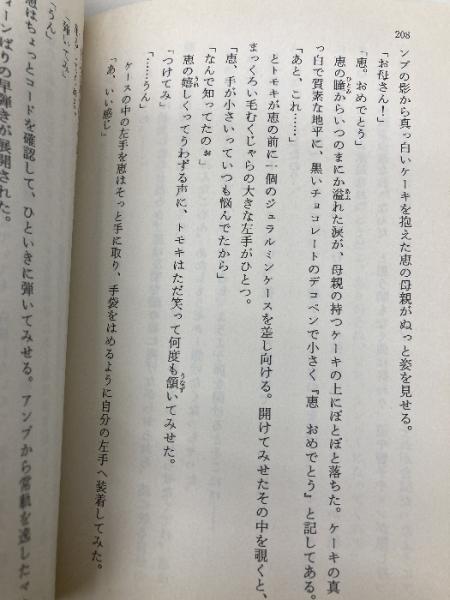 208
ンプの影から真っ白いケーキを抱えた恵の母親がぬっと姿を見せる。
「お母さん！」
「恵。おめでとう」
恵の瞳からいつのまにか溢れた涙が、母親の持つケーキの上にぽとぽと落ちた。ケーキの真
っ白で質素な地平に、黒いチョコレートのデコペンで小さく『恵　おめでとう』と記してある。
「あと、これ……」
とトモキが恵の前に一個のジュラルミンケースを差し向ける。開けてみせたその中を覗くと、
まっくろい毛むくじゃらの大きな左手がひとつ。
「恵、手が小さいっていつも悩んでたから」
「なんで知ってたのぉ」
恵の嬉しくってうわずる声に、トモキはただ笑って何度も頷いてみせた。
「つけてみ」
「……うん」
ケースの中の左手を恵はそっと手に取り、手袋をはめるように自分の左手へ装着してみた。
「あ、いい感じ」
「弾いてみ」
「うん」
恵はちょっとコードを確認して、ひといきに弾いてみせる。アンプから常軌を逸した
ィーンばりの早弾きが展開された。